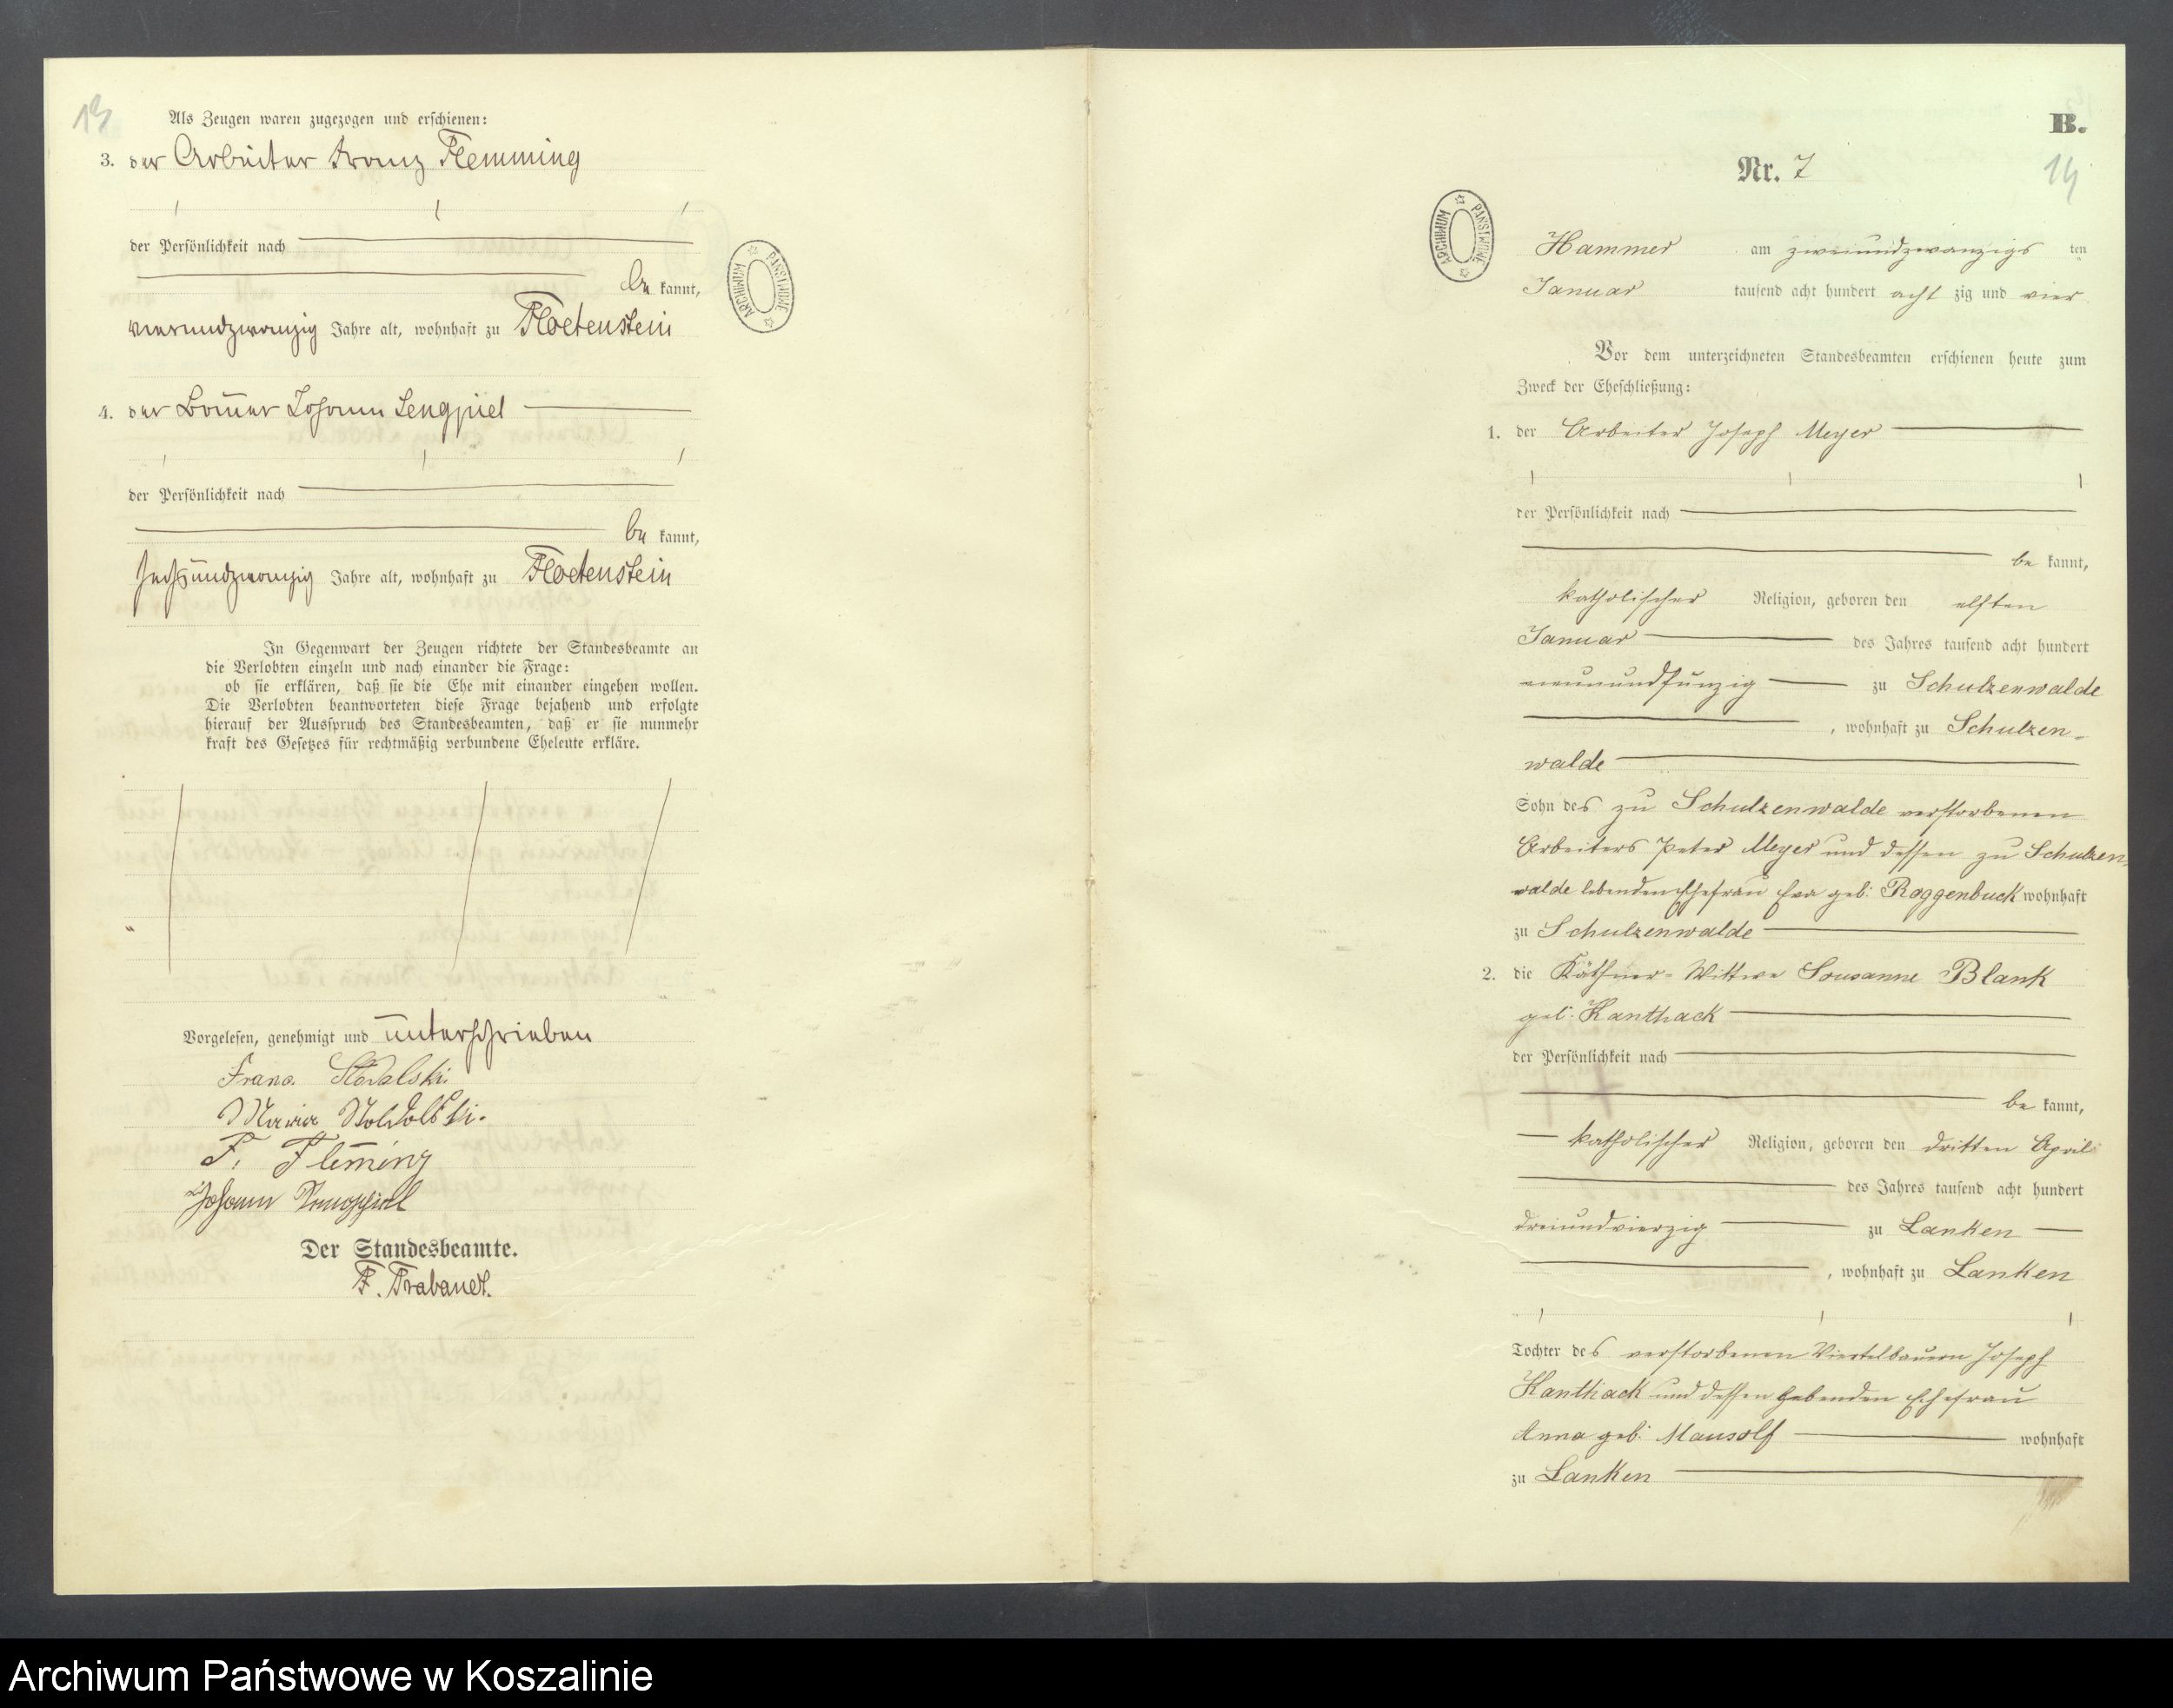 13
Als Zeugen waren zugezogen und erschienen:
3. der Arbeiter Franz Flemming
der Persönlichkeit nach
be kannt,
vierundzwanzig Jahre alt, wohnhaft zu Floetenstein
4. der Bauer Johann Lengpiel
der Persönlichkeit nach
be kannt,
sechsundzwanzig Jahre alt, wohnhaft zu Floetenstein
In Gegenwart der Zeugen richtete der Standesbeamte an
die Verlobten einzeln und nach einander die Frage:
ob sie erklären, daß sie die Ehe mit einander eingehen wollen.
Die Verlobten beantworteten diese Frage bejahend und erfolgte
hierauf der Ausspruch des Standesbeamten, daß er sie nunmehr
kraft des Gesetzes für rechtmäßig verbundene Eheleute erkläre.
Vorgelesen, genehmigt und unterschrieben
Franz
Maria
F. Fleming
Johann
Der Standesbeamte.
F. Trabandt.
ARCHIWUM PAŃSTWOWE
B.
Nr. 7
14
ARCHIWUM PAŃSTWOWE
Hammer am zweiundzwanzigs ten
Januar tausend acht hundert acht zig und vier
Vor dem unterzeichneten Standesbeamten erschienen heute zum
Zweck der Eheschließung:
1. der Arbeiter Joseph Meyer
der Persönlichkeit nach
be kannt,
katholischer Religion, geboren den elften
Januar des Jahres tausend acht hundert
neunundfünzig zu Schulzenwalde
, wohnhaft zu Schulzen-
walde
Sohn des zu Schulzenwalde verstorbenen
Arbeiters Peter Meyer und dessen zu Schulzen-
walde lebenden Ehefrau Eva geb: Roggenbuck wohnhaft
zu Schulzenwalde
2. die Käthner-Wittwe Sousanne Blank
geb: Kanthack
der Persönlichkeit nach
be kannt,
katholischer Religion, geboren den dritten April
des Jahres tausend acht hundert
dreiundvierzig zu Lanken
, wohnhaft zu Lanken
Tochter des verstorbenen Viertelbauern Joseph
Kanthack und dessen lebenden Ehefrau
Anna geb: Mausolf wohnhaft
zu Lanken
Archiwum Państwowe w Koszalinie